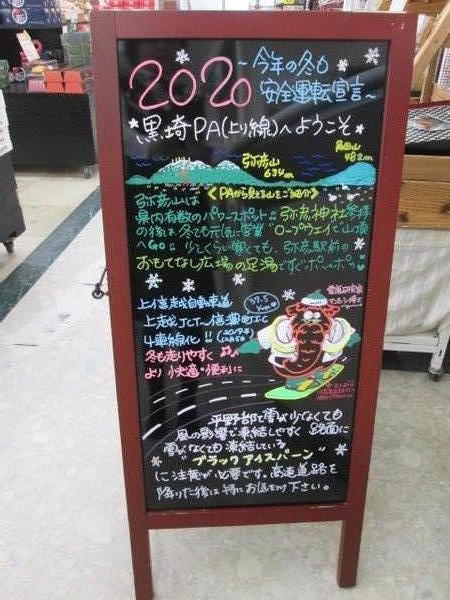 2020 ~今年の冬も
安全運転宣言~
*黒埼PA(上り線)へようこそ*
弥彦山
634m
角田山
482m
<PAから見える山をご紹介>
弥彦山は
県内有数のパワースポット!! 弥彦神社参拝
の後は冬でも元気に営業"ロープウェイ"で山頂
へGo!! 少しくらい寒くても、弥彦駅前の
おもてなし広場の足湯ですぐポッカポカ♥
上信越自動車道
上越JCT~信濃町IC
4車線化!!
冬も走りやすく♫
より快適・便利に
37.5
Km
平野部で雪が少なくても
風の影響で凍結しやすく 路面に
雪がなくても凍結している
"ブラックアイスバーン"
に注意が必要です。高速道路を
降りた後は特にお気を付け下さい。